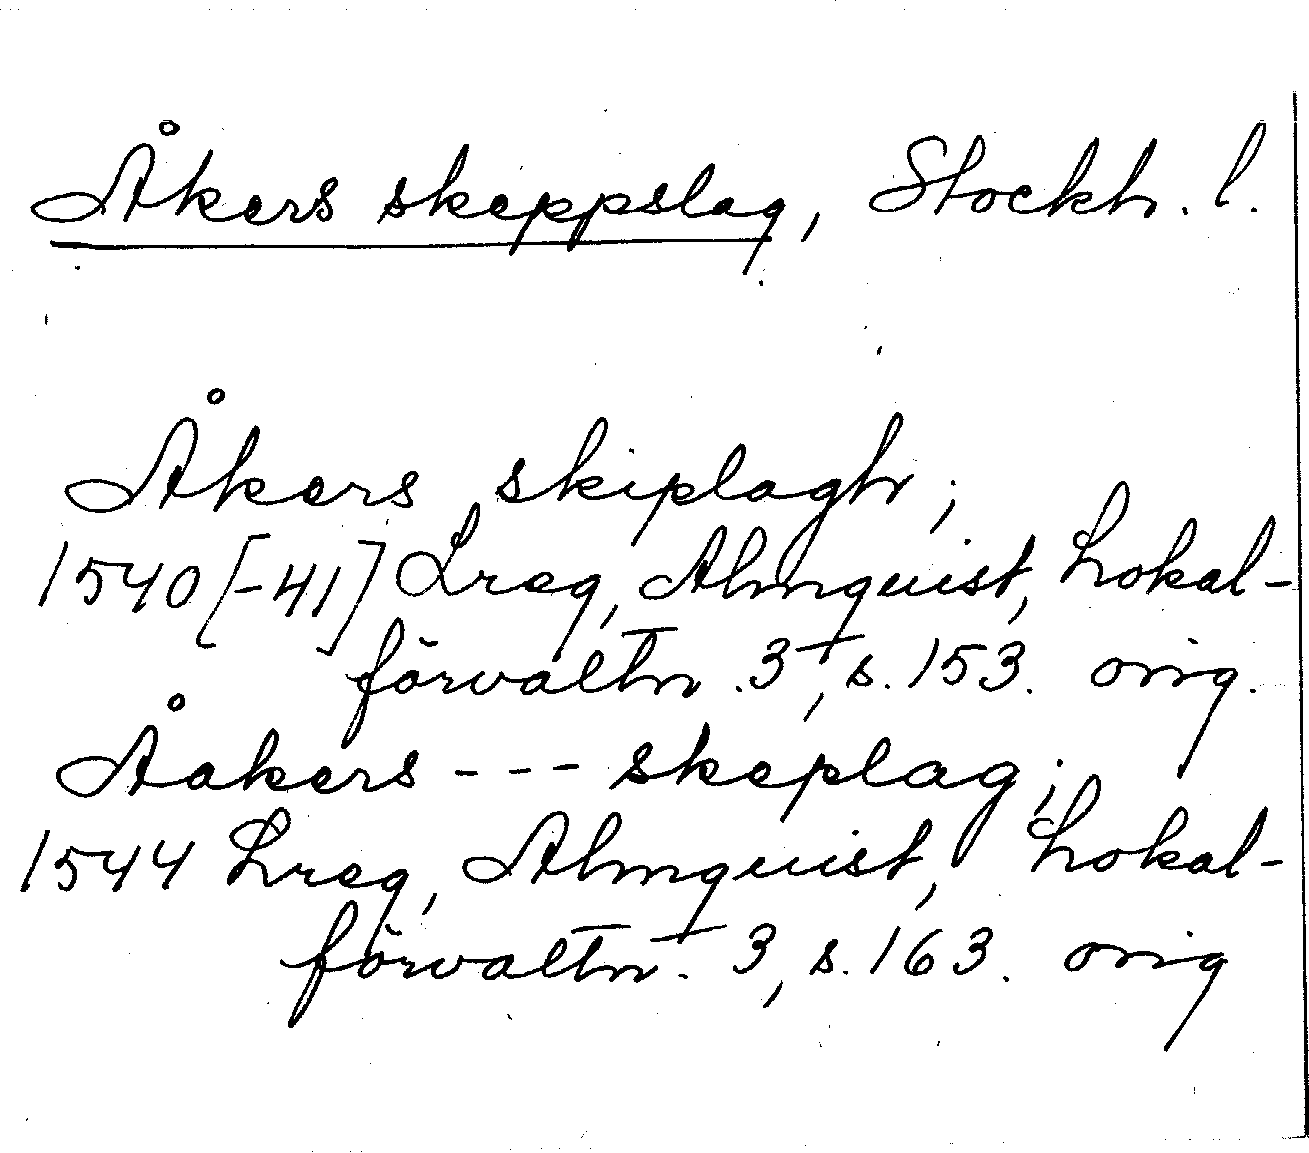 Åkers skeppslag, Stockh. l.
Åkers skiplagh;
1540[-41] Lreg, Almquist, Lokal-
förvaltn. 3, s. 153. orig.
Åakers --- skeplag;
1544 Lreg, Almquist, Lokal-
förvaltn. 3, s. 163. orig